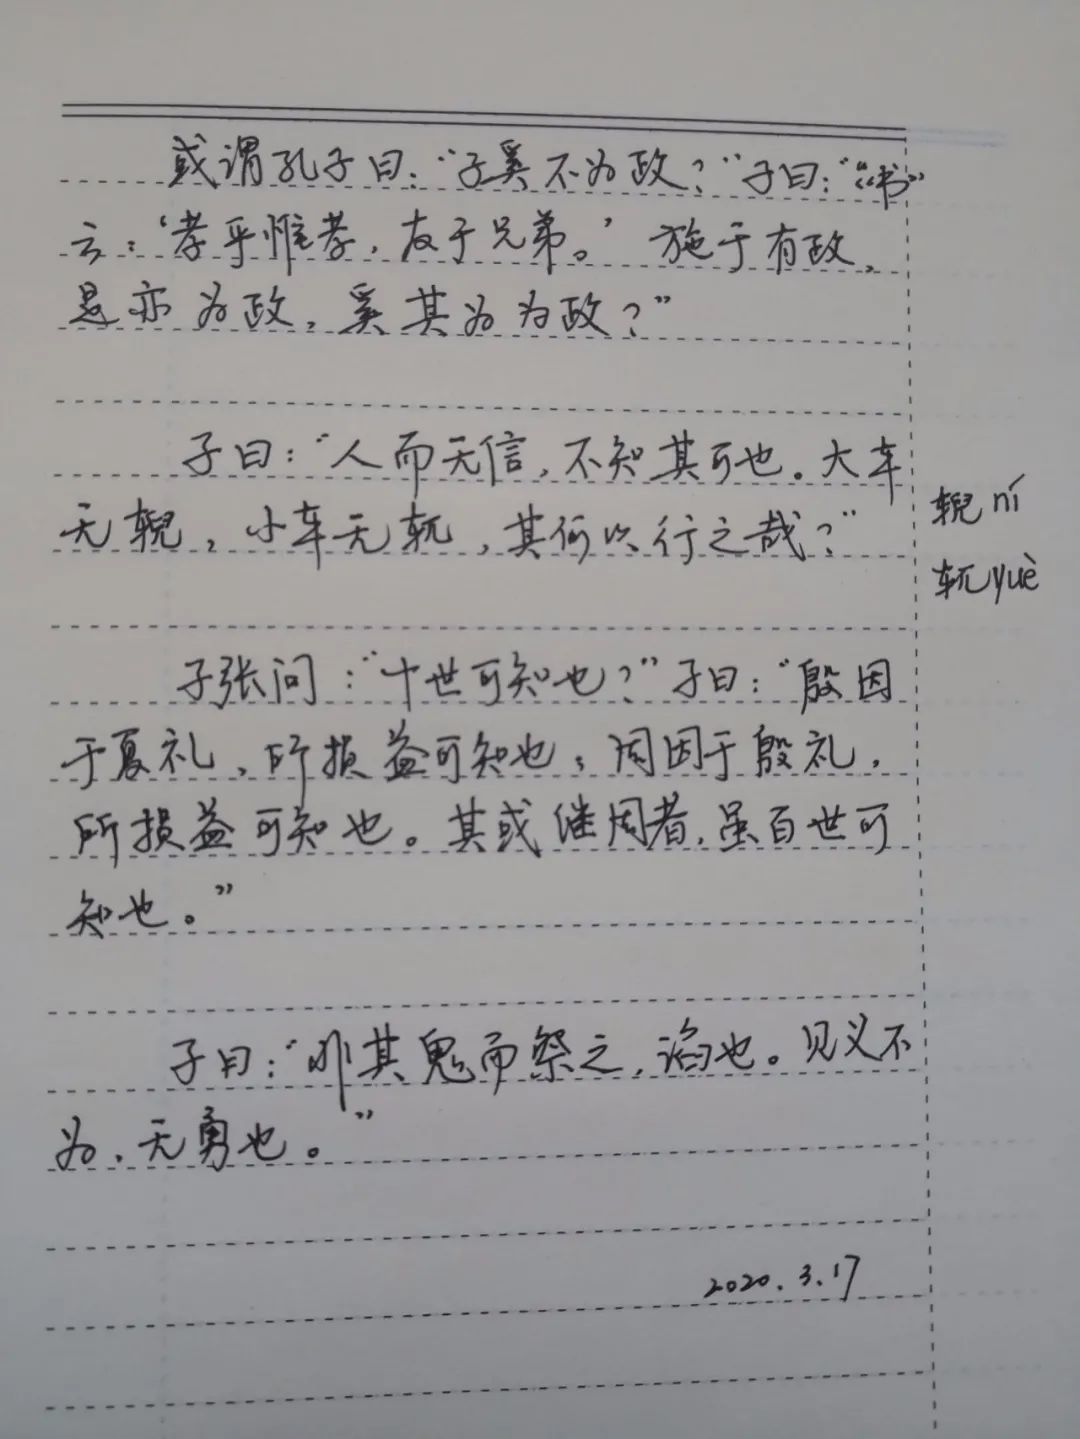 或谓孔子曰：“子奚不为政？”子曰：“《书》
云：‘孝乎惟孝，友于兄弟。’施于有政，
是亦为政，奚其为为政？”
子曰：“人而无信，不知其可也。大车
无輗，小车无軏，其何以行之哉？”
輗 ní
軏 yuè
子张问：“十世可知也？”子曰：“殷因
于夏礼，所损益可知也；周因于殷礼，
所损益可知也。其或继周者，虽百世可
知也。”
子曰：“非其鬼而祭之，谄也。见义不
为，无勇也。”
2020.3.17